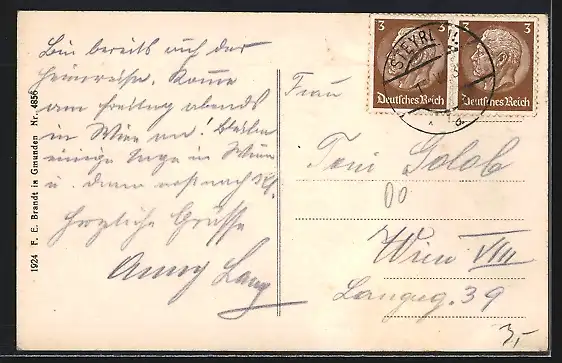 Bin bereits auf der
Heimreise. Komme
am Freitag abends
in Wien an! Bleibe
einige Tage in Wien
u. dann erst nach
Herzliche Grüsse
Anny Lang
1924 F. E. Brandt in Gmunden Nr. 4856
3 3
Deutsches Reich Deutsches Reich
STEYR
Frau
Toni Golob
Wien VIII
Langeg. 39
3,-